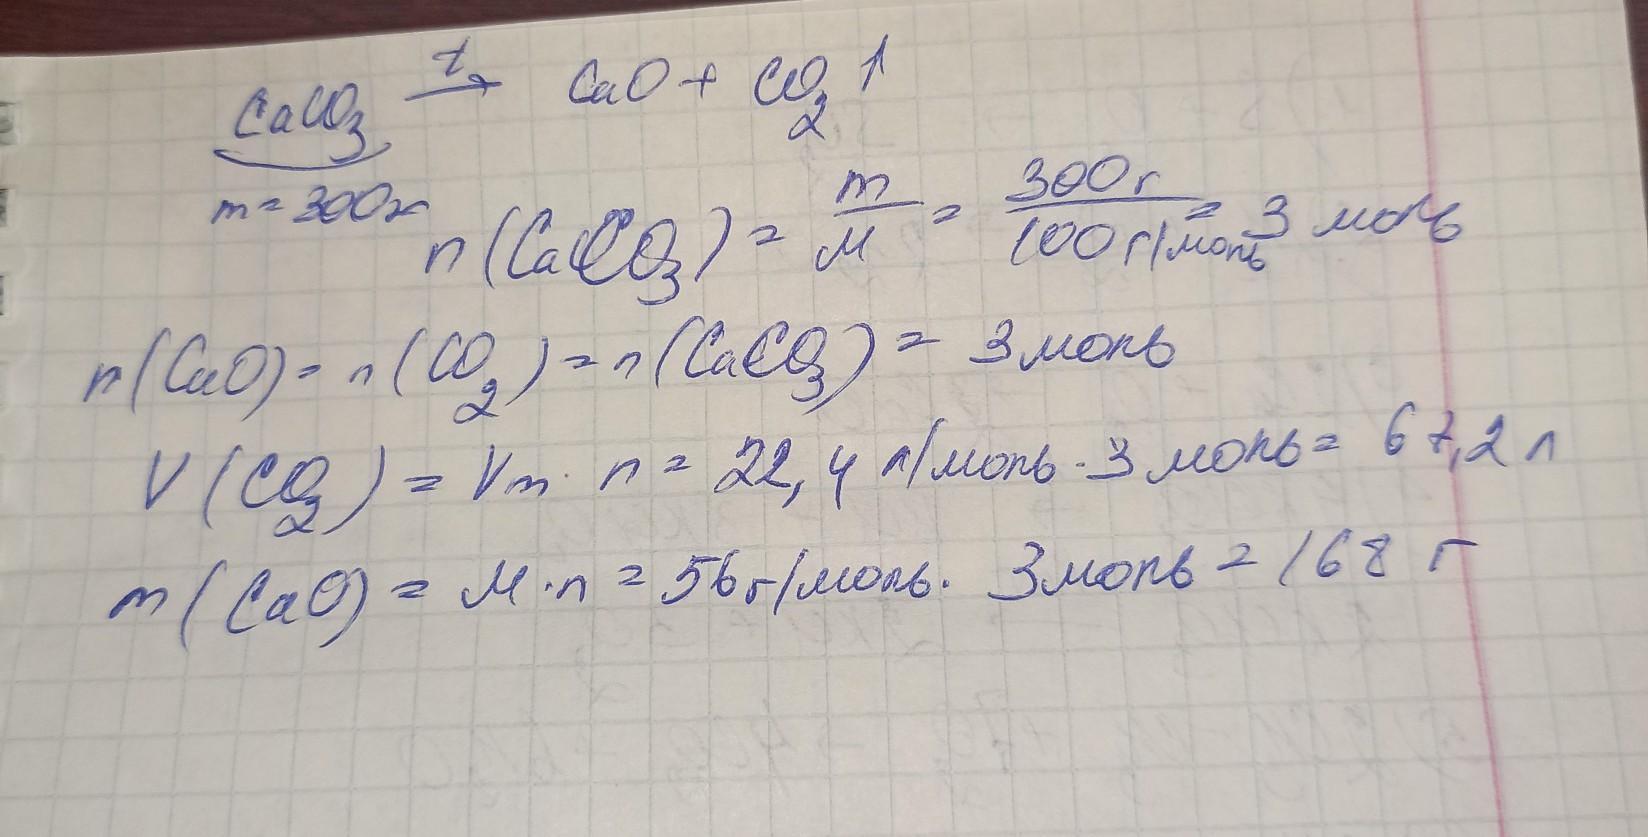 CaCO₃ →t CaO + CO₂↑
m = 300г
n(CaCO₃) = m/M = 300г/100г/моль = 3 моль
n(CaO) = n(CO₂) = n(CaCO₃) = 3 моль
V(CO₂) = Vm · n = 22,4 л/моль · 3 моль = 67,2 л
m(CaO) = M · n = 56г/моль · 3 моль = 168 г